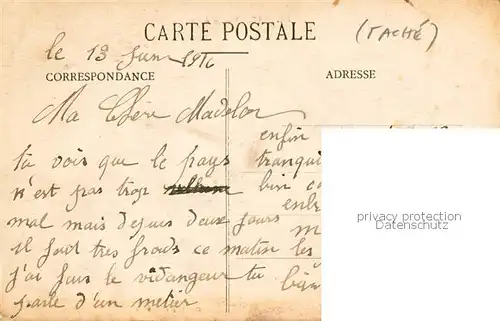 CARTE POSTALE
(TACHÉ)
le 13 juin 1916
CORRESPONDANCE
ADRESSE
Ma Chère Madelon
tu vois que le pays
n'est pas trop
mal mais depuis deux jours
il fait très froids ce matin
j'ai fais le vidangeur tu
parle d'un métier
enfin
tranqui
bien
les
privacy protection
Datenschutz